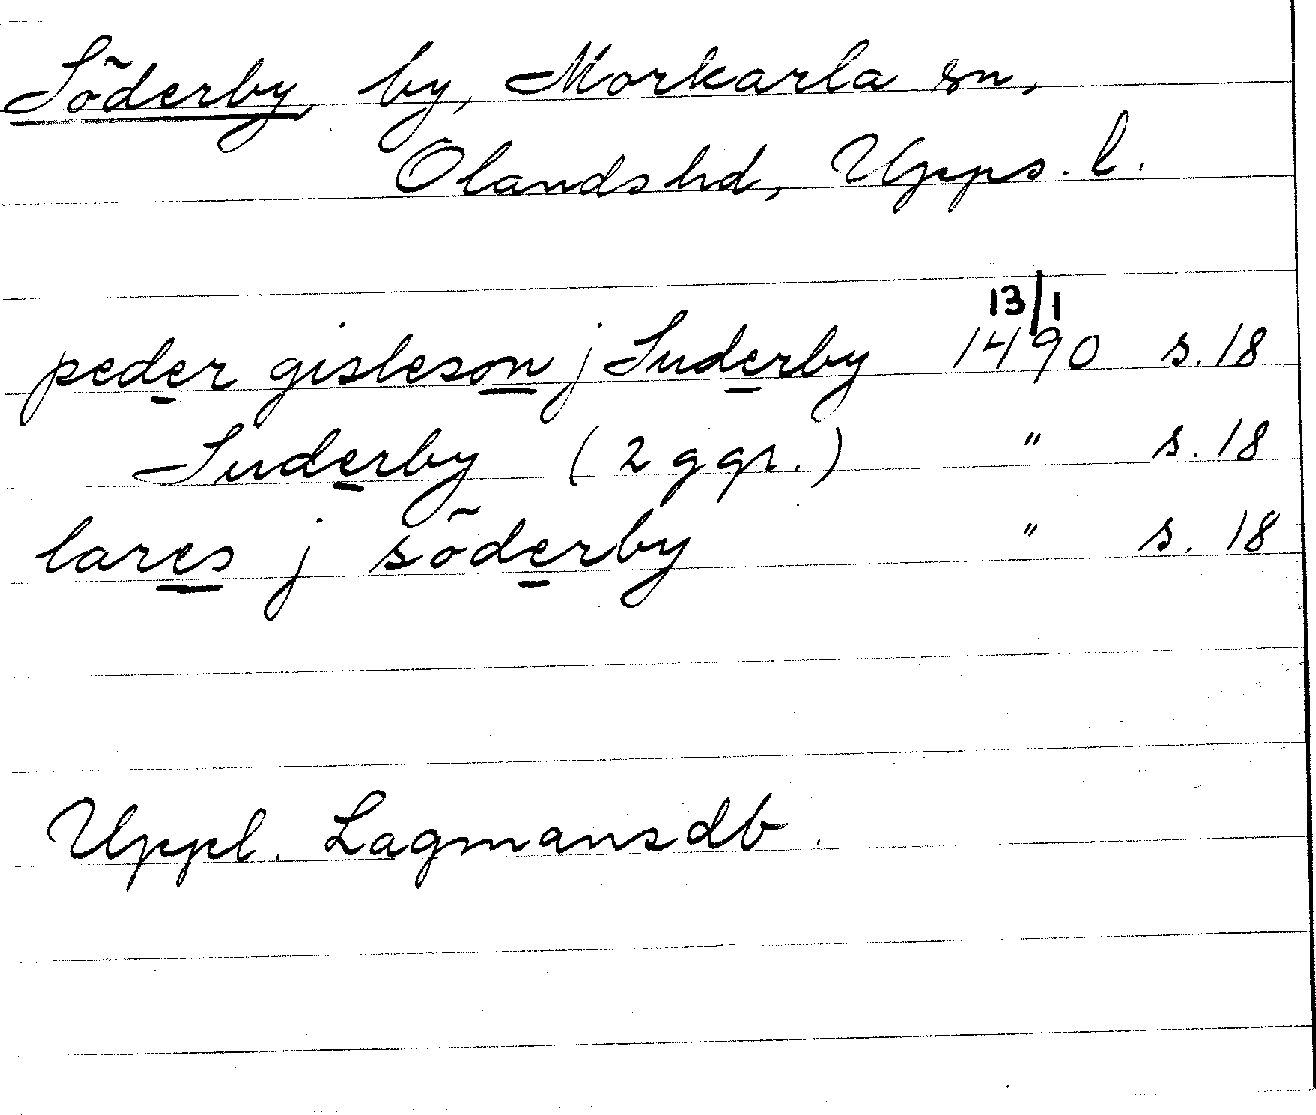 Söderby, by, Morkarla sn,
Olandshd, Upps. l.
13/1
peder gisleson j Suderby 1490 s. 18
Suderby (2 ggr.) " s. 18
lares j söderby " s. 18
Uppl. Lagmansdb.